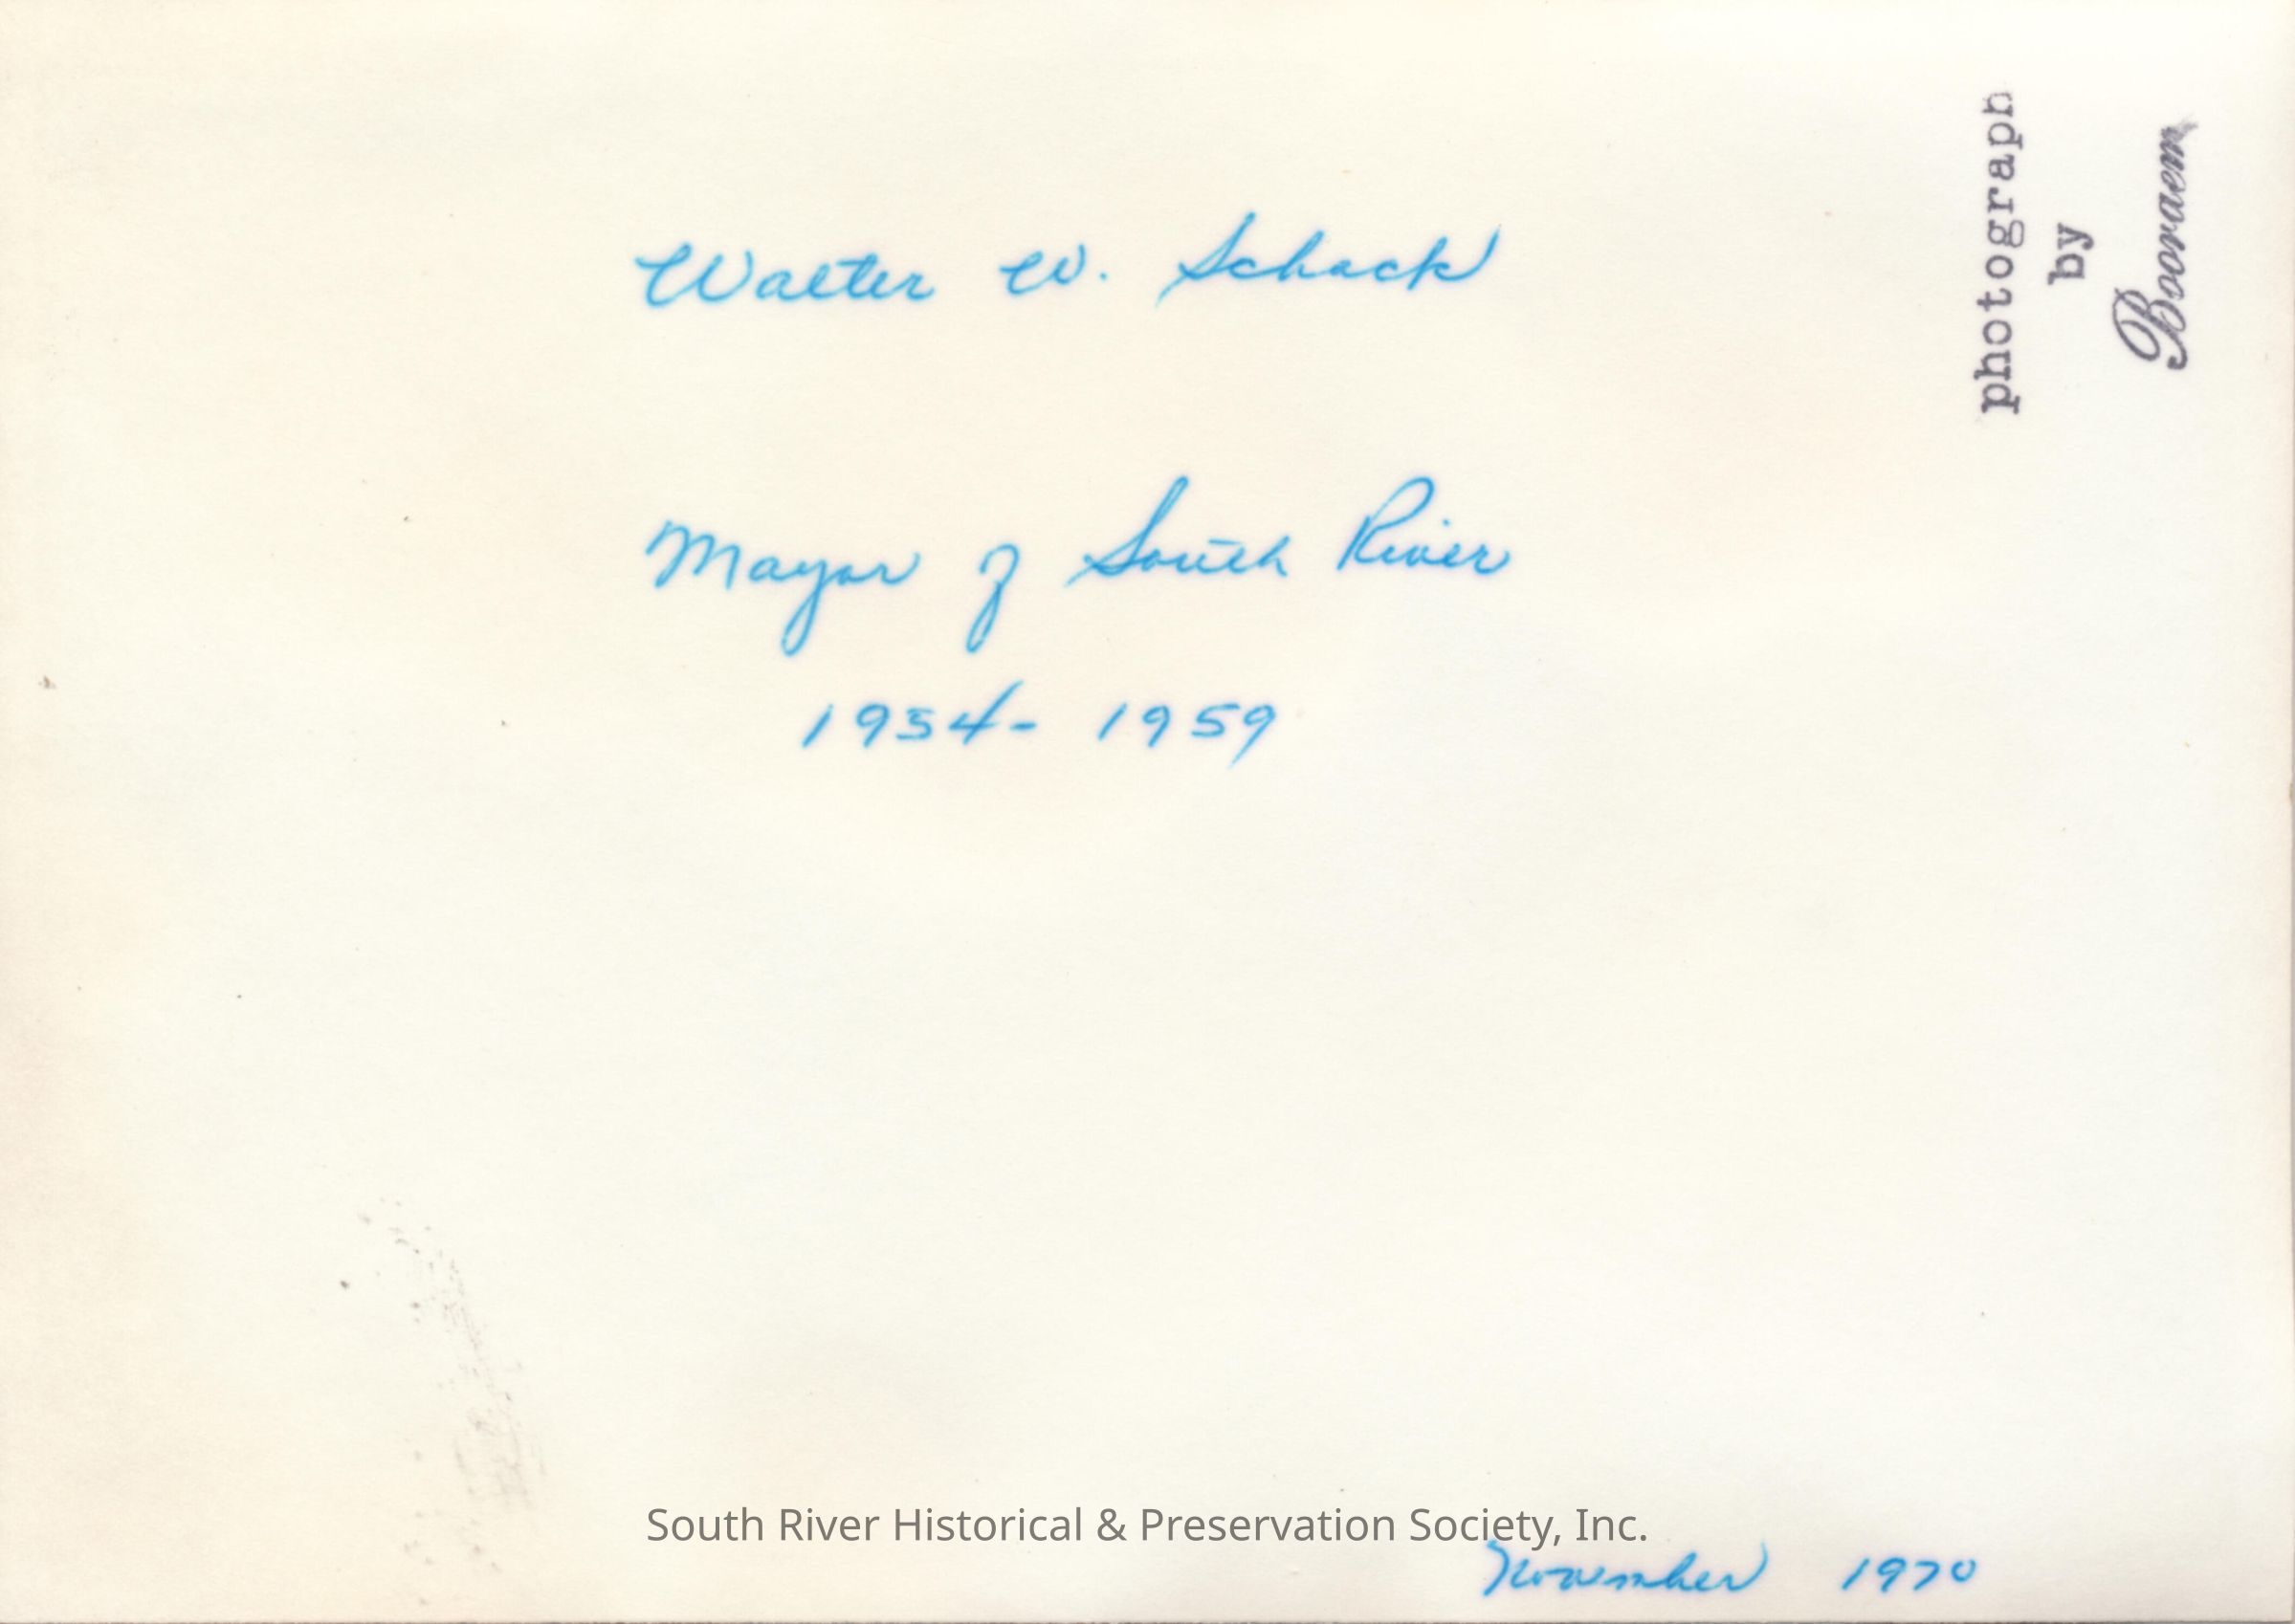 Walter W. Schack
Mayor of South River
1954- 1959
photograph
by
Boorasem
South River Historical & Preservation Society, Inc.
November 1970